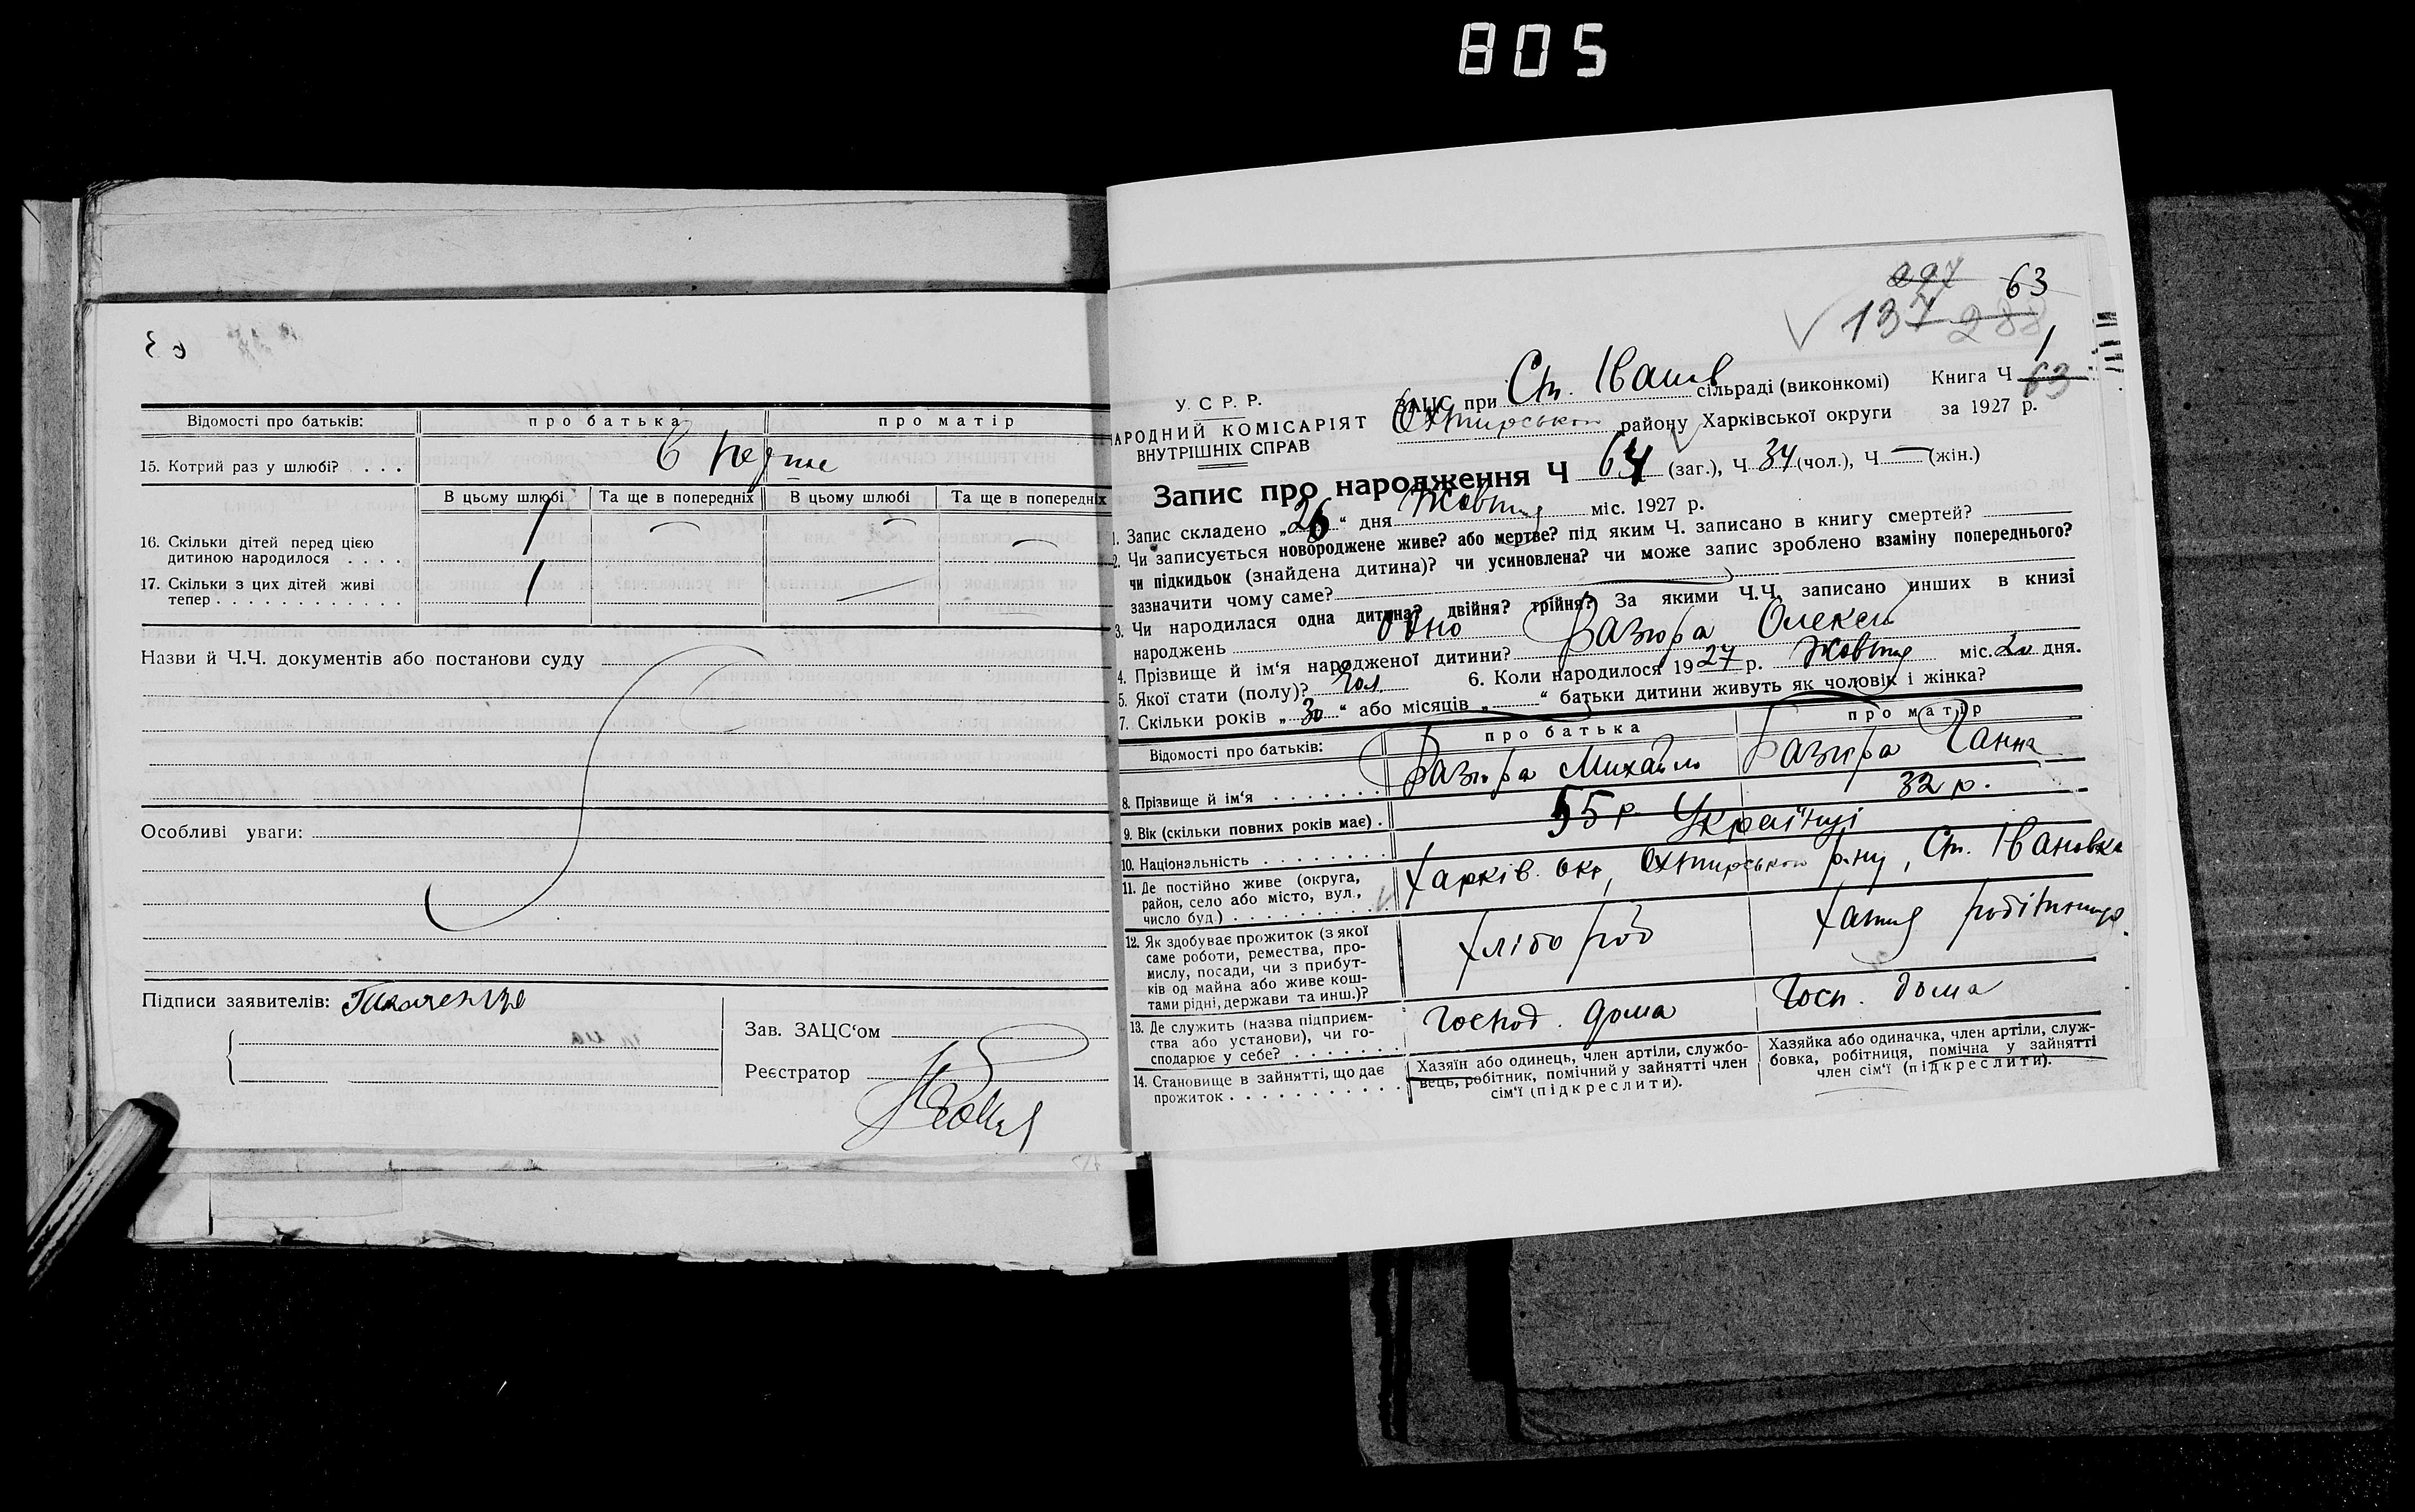 805
Відомості про батьків: про батька про матір
15. Котрий раз у шлюбі? . . . . В перше
В цьому шлюбі Та ще в попередніх В цьому шлюбі Та ще в попередніх
16. Скільки дітей перед цією
дитиною народилося . . . . 1 — — —
17. Скільки з цих дітей живі
тепер . . . . . . . . . . . . . 1 —
Назви й Ч.Ч. документів або постанови суду
Особливі уваги:
Підписи заявителів:
Зав. ЗАЦС‘ом
Реєстратор
227 63
137 288
1
У. С Р. Р.
НАРОДНИЙ КОМІСАРІЯТ
ВНУТРІШНІХ СПРАВ
ЗАЦС при Ст. Іванів сільраді (виконкомі) Книга Ч 63
Охтирською району Харківської округи за 1927 р.
Запис про народження Ч 64 (заг.), Ч 34 (чол.), Ч — (жін.)
1. Запис складено „26“ дня Жовтня міс. 1927 р.
2. Чи записується новороджене живе? або мертве? під яким Ч. записано в книгу смертей?
чи підкидьок (знайдена дитина)? чи усиновлена? чи може запис зроблено взаміну попереднього?
зазначити чому саме?
3. Чи народилася одна дитина? двійня? трійня? За якими Ч.Ч. записано инших в книзі
народжень одно
4. Прізвище й ім‘я народженої дитини? Разюра Олексій
5. Якої стати (полу)? чол. 6. Коли народилося 1927 р. Жовтня міс. 20 дня.
7. Скільки років „30“ або місяців „ “ батьки дитини живуть як чоловік і жінка?
Відомості про батьків: про батька про матір
8. Прізвище й ім‘я . . . . . . . Разюра Михайло Разюра Ганна
9. Вік (скільки повних років має) . 55 р. 32 р.
10. Національність . . . . . . . . Українці
11. Де постійно живе (округа,
район, село або місто, вул.,
число буд.) . . . . . . . . . Харків. окр, Охтирською р-ну, Ст. Івановка
12. Як здобуває прожиток (з якої
саме роботи, ремества, про-
мислу, посади, чи з прибут-
ків од майна або живе кош-
тами рідні, держави та инш.)? Хлібороб Хатня робітниця
13. Де служить (назва підприєм-
ства або установи), чи го-
сподарює у себе? . . . . . . . Господ. дома Госп. дома
14. Становище в зайнятті, що дає
прожиток . . . . . . . . . . .
Хазяїн або одинець, член артіли, службо-
вець, робітник, помічний у зайнятті член
сім‘ї (підкреслити).
Хазяйка або одиначка, член артіли, служ-
бовка, робітниця, помічна у зайнятті
член сім‘ї (підкреслити).